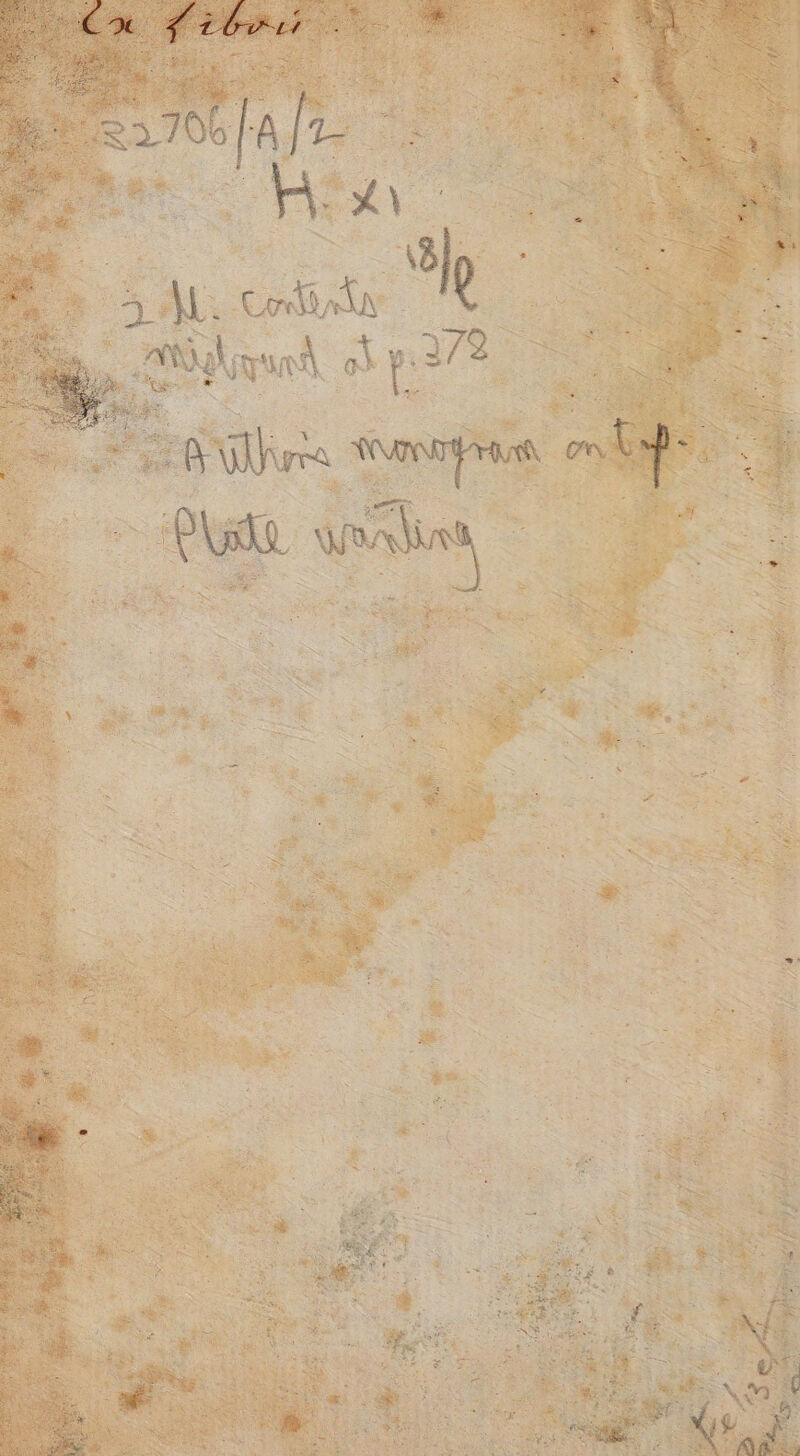 Ex libris
22706/A/2
H. XI
18/e
2 ll. Contents
misbound at p. 372
Authors monogram on t.p.
Plate wanting